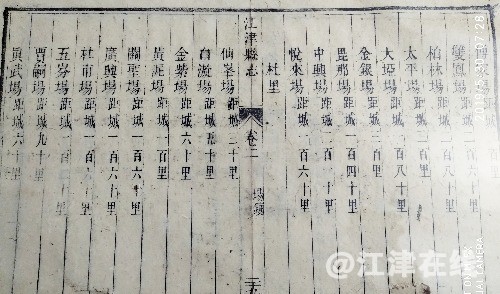 雙鳳場距城一百八十里
柏林場距城一百八十里
太平場距城一百八十里
大埡場距城一百八十里
金銀場距城一百里
毘那場距城一百四十里
中興場距城一百
悅來場距城一百六十里
杜里
江津縣志
卷二
場鎮
仙峯場距城二十里
白沙場距城五十里
金紫場距城六十里
黃泥場距城一百里
關聖場距城一百六十里
廣興場距城一百六十里
杜市場距城一百
五岔場距城一百
賈嗣場距城九十里
眞武場距城六十里
@江津在线